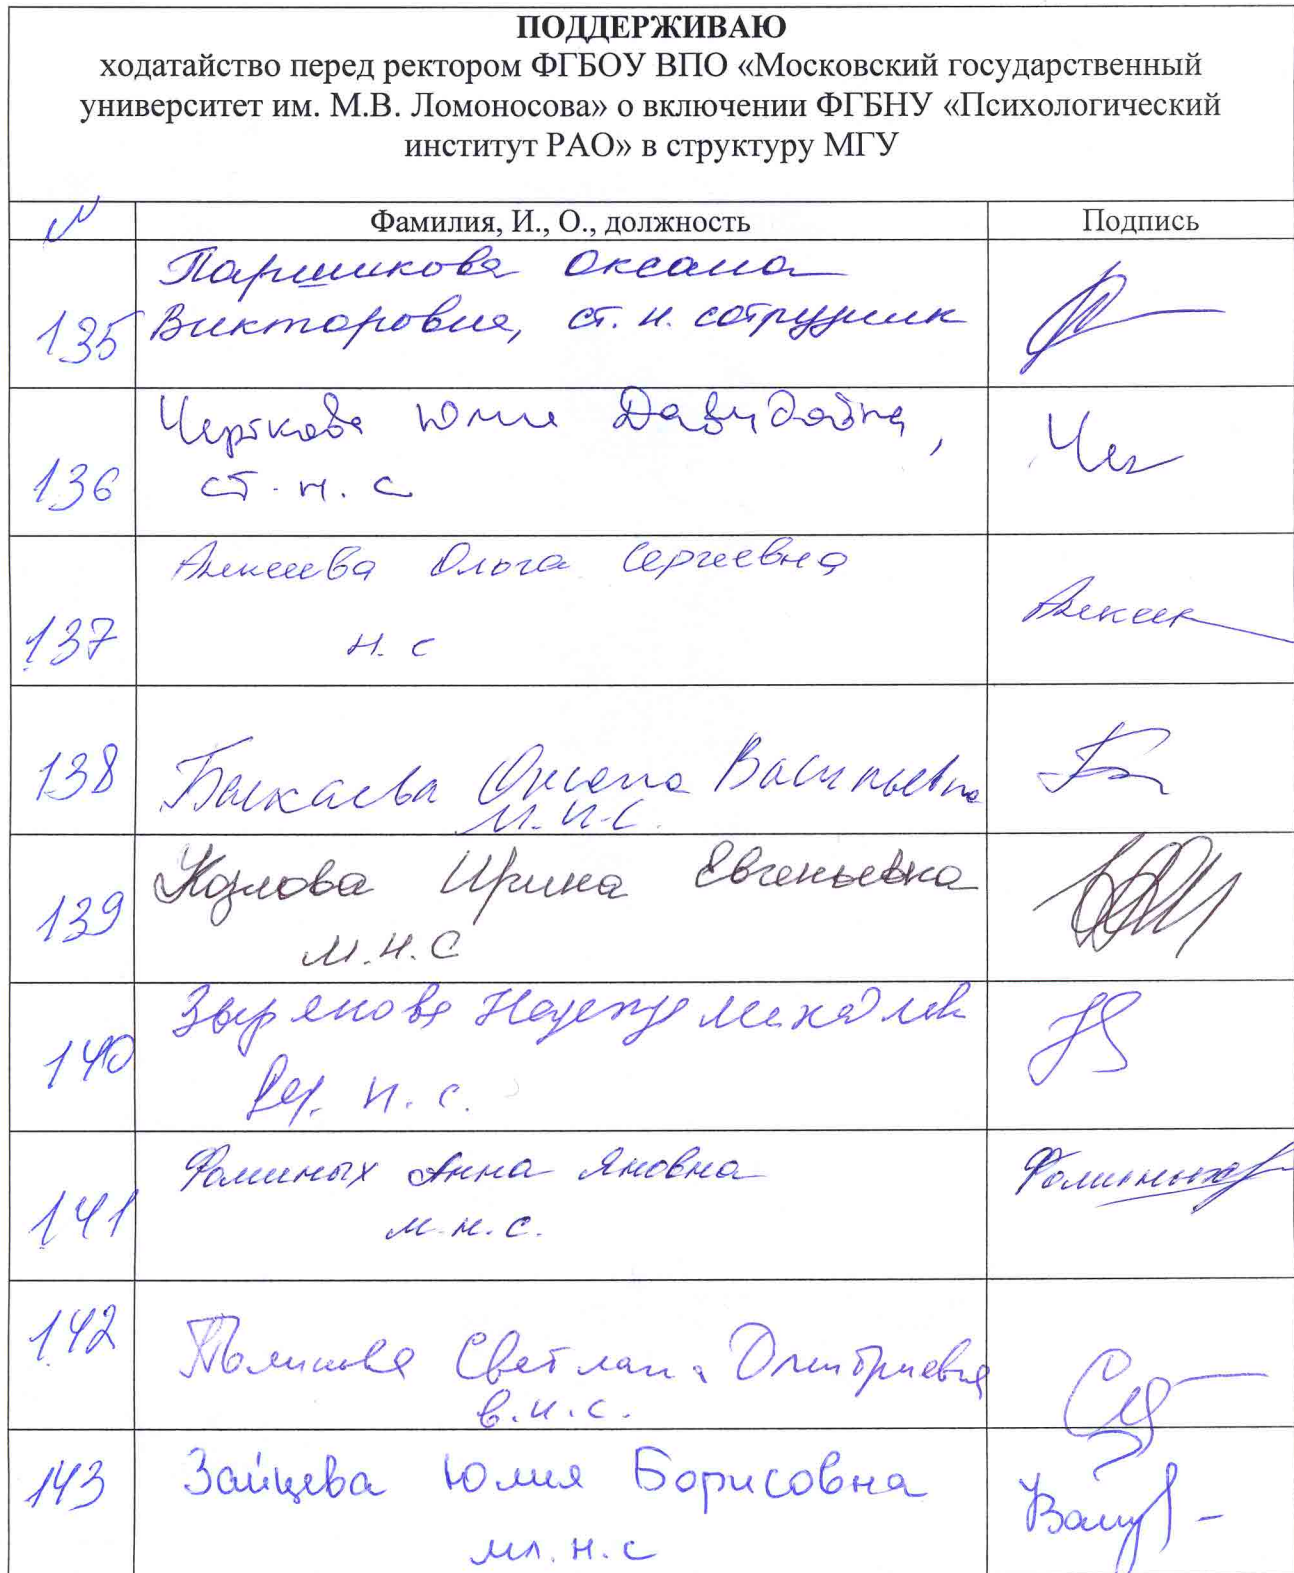 ПОДДЕРЖИВАЮ
ходатайство перед ректором ФГБОУ ВПО «Московский государственный
университет им. М.В. Ломоносова» о включении ФГБНУ «Психологический
институт РАО» в структуру МГУ
N Фамилия, И., О., должность Подпись
Паршикова Оксана
135 Викторовна, ст. н. сотрудник
Черткова Юлия Давидовна,
136 ст. н. с
Алексеева Ольга Сергеевна
137 н. с
138 Оксана Васильевна
м.н.с.
Козлова Ирина Евгеньевна
139 м.н.с
Зырянова Надежда
140 н. с.
Фоминых Анна Яновна Фоминых
141 м.н.с.
142 Светлана Дмитриевна
в.н.с.
143 Зайцева Юлия Борисовна
мл. н. с